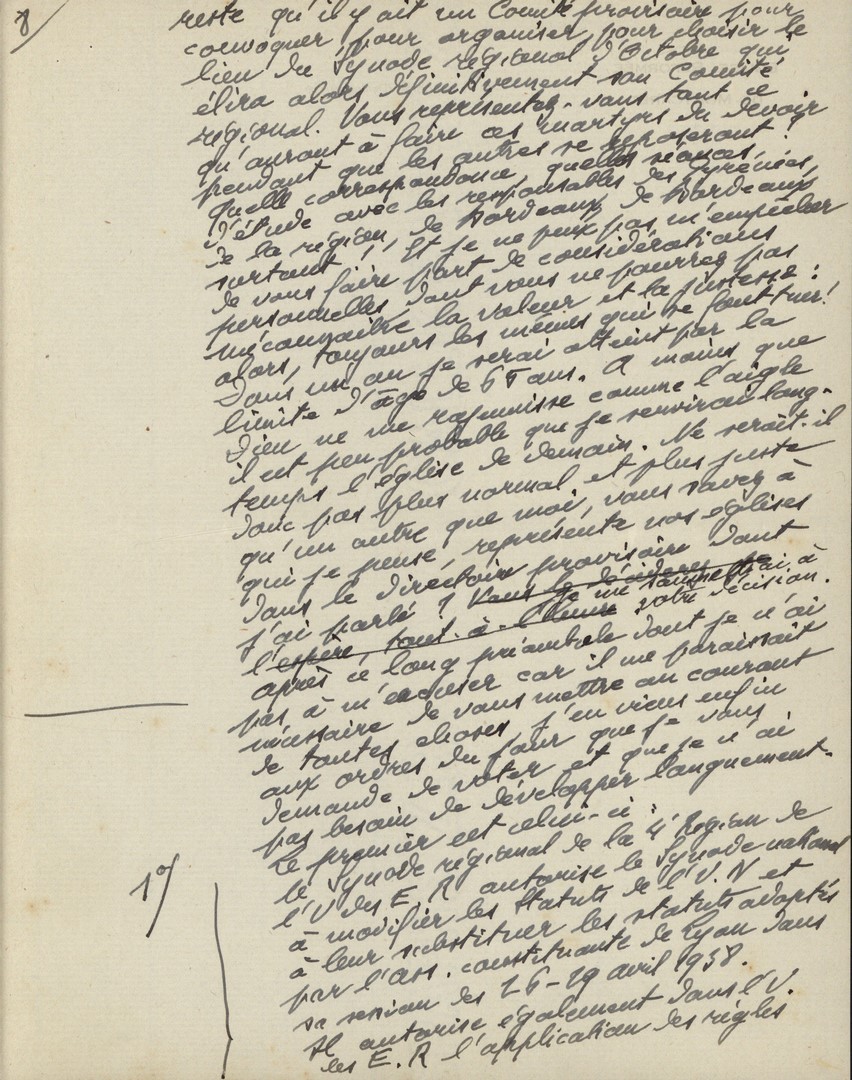 8/
reste qu'il y ait un Comité provisoire pour
convoquer pour organiser, pour choisir le
lieu du Synode régional d'Octobre qui
élira alors définitivement son Comité
régional. Vous représentez-vous tout ce
qu'auront à faire ces martyrs du devoir
pendant que les autres se reposeront !
Quelle correspondance, quelles séances
d'étude avec les responsables des Pyrénées,
de la région de Bordeaux, de Bordeaux
surtout ! Et je ne peux pas m'empêcher
de vous faire part de considérations
personnelles dont vous ne pourrez pas
méconnaître la valeur et la justesse :
alors, toujours les mêmes qui se font tuer !
Dans un an je serai atteint par la
limite d'âge de 65 ans. A moins que
Dieu ne me rajeunisse comme l'aigle
il est peu probable que je servirai long-
temps l'église de demain. Ne serait-il
donc pas plus normal et plus juste
qu'un autre que moi, vous savez à
qui je pense, représente nos églises
dans le directoire provisoire dont
j'ai parlé ? Vous le déciderez je me soumettrai à
l'espère tout-à-l'heure votre décision.
après ce long préambule dont je n'ai
pas à m'excuser car il me paraissait
nécessaire de vous mettre au courant
de toutes choses j'en viens enfin
aux ordres du jour que je vous
demande de voter et que je n'ai
pas besoin de développer longuement.
Le premier est celui-ci :
1°/ le Synode régional de la 4e Région de
l'U des E. R autorise le Synode national
à modifier les Statuts de l'U. N et
à leur substituer les statuts adoptés
par l'Ass. constituante de Lyon dans
sa session des 26-29 avril 1938.
Il autorise également dans l'U.
des E. R l'application des règles